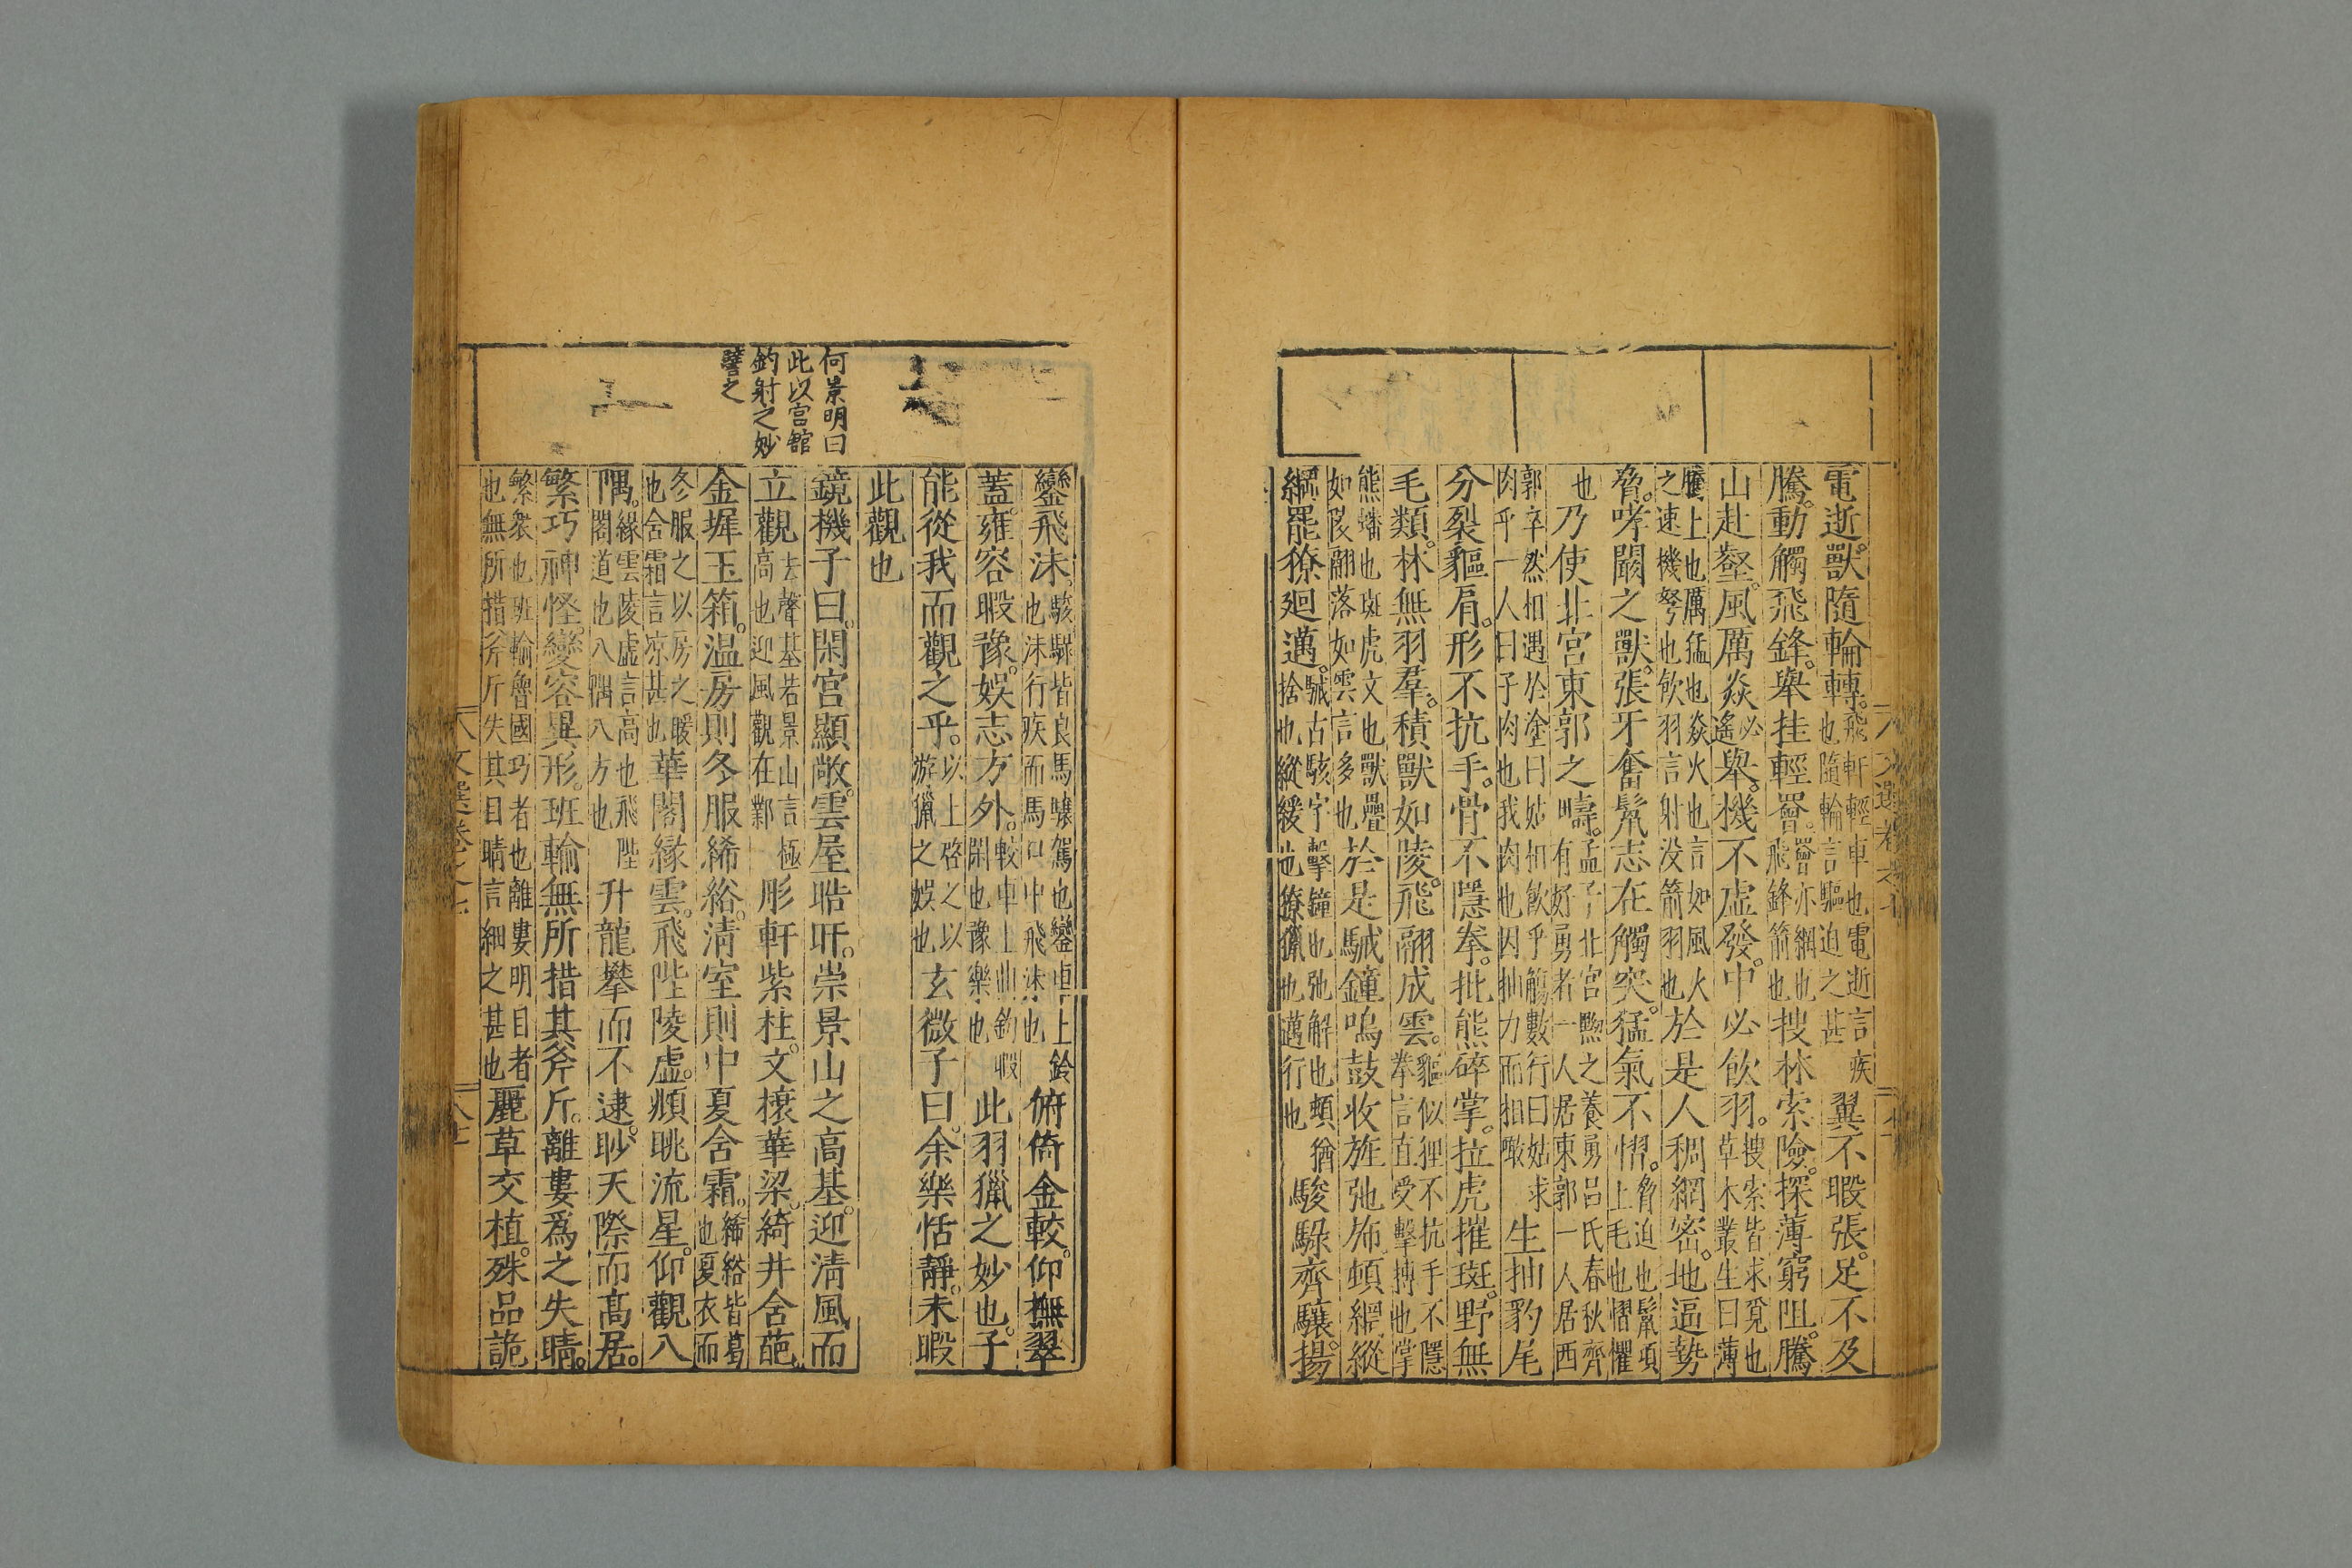 電逝。獸隨輪轉。飛軒輕車也電逝言疾也隨輪言驅迫之甚翼不暇張。足不及
騰。動觸飛鋒。舉挂輕罾。罾亦網也飛鋒箭也搜林索險。探薄窮阻。騰
山赴壑。風厲焱必遙舉。機不虛發。中必飲羽。搜索皆求覓也草木叢生曰薄
騰上也厲猛也焱火也言如風火之速機弩也飲羽言射没箭羽也於是人稠網密。地逼勢
脅。哮闞之獸。張牙奮鬣志在觸突。猛氣不慴。脅迫也鬣項上毛也慴懼
也乃使北宮東郭之疇。孟子北宮黝之養勇呂氏春秋齊有好勇者一人居東郭一人居西
郭卒然相遇於塗曰姑相飲乎觴數行曰姑求肉乎一人曰子肉也我肉也因抽力而相噉生抽豹尾
分裂貙肩。形不抗手。骨不隱拳。批熊碎掌。拉虎摧斑。野無
毛類。林無羽羣。積獸如陵。飛翮成雲。貙似狸不抗手不隱拳言直受擊搏也掌
熊蟠也斑虎文也獸疊如陵翮落如雲言多也於是駴鐘鳴鼓收旌弛斾頓網縱
綱罷獠廻邁。駴古駭字擊鐘也弛解也頓猶捨也縱緩也獠獵也邁行也駿騄齊驤。揚
鑾飛沫。駿騄皆良馬驤駕也鑾車上鈴也沫行疾而馬口中飛沫也俯倚金較。仰撫翠
蓋。雍容暇豫。娛志方外。較車上曲鈎暇閑也豫樂也此羽獵之妙也。子
能從我而觀之乎。以上啓之以游獵之娱也玄微子曰。余樂恬靜。未暇
此觀也
何景明曰
此以宮館
釣射之妙
譬之
鏡機子曰。閑宮顯敞。雲屋晧旰。崇景山之高基。迎清風而
立觀去聲基若景山言極高也迎風觀在鄴彤軒紫柱。文榱華梁。綺井含葩。
金墀玉箱。温房則冬服絺綌。清室則中夏含霜。絺綌皆葛也夏衣而
冬服之以房之暖也含霜言凉甚也華閣緣雲。飛陛陵虛。頫眺流星。仰觀八
隅。緣雲陵虛言高也飛陛閣道也八隅八方也升龍攀而不逮。眇天際而高居。
繁巧神怪。變容異形。班輸無所措其斧斤。離婁爲之失睛。
繁衆也班輸魯國巧者也離婁明目者也無所措斧斤失其目睛言細之甚也麗草交植。殊品詭
文選卷之七